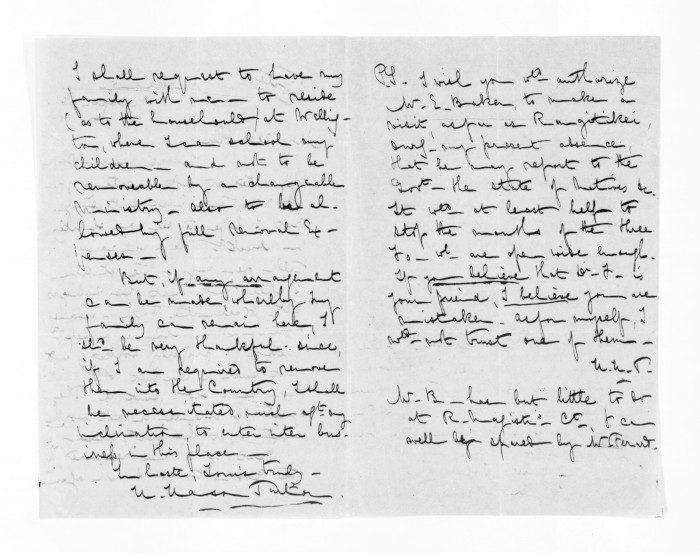 I shall request to have my
family with me — to reside
(as to the household) at Welling-
ton, where I can school my
children — and not to be
removeable by a changeable
Ministry — also to be al-
lowed my full removal Ex-
penses —
But, if any arrangement
can be made whereby my
family can remain here, I
shd. be very thankful. since,
if I am required to remove
them into the Country, I shall
be necessitated, much agst. my
inclination, to enter into bus-
iness in this place —
In haste, Yours truly —
P.S. I wish you wd. authorize
Mr. E. Baker, to make a
visit, as far as Rangitikei,
durg. my present absence,
that he may report to the
Govt. the state of Natives &c.
It wd. at least help to
stop the mouths of the three
Fs, wh. are open wide enough.
If you believe that Dr. F. is
your friend, I believe you are
mistaken. as for myself, I
wd. not trust one of them —
Mr. B — has but little to do
at R. Magistr's Ct., & can
well be spared by Mr